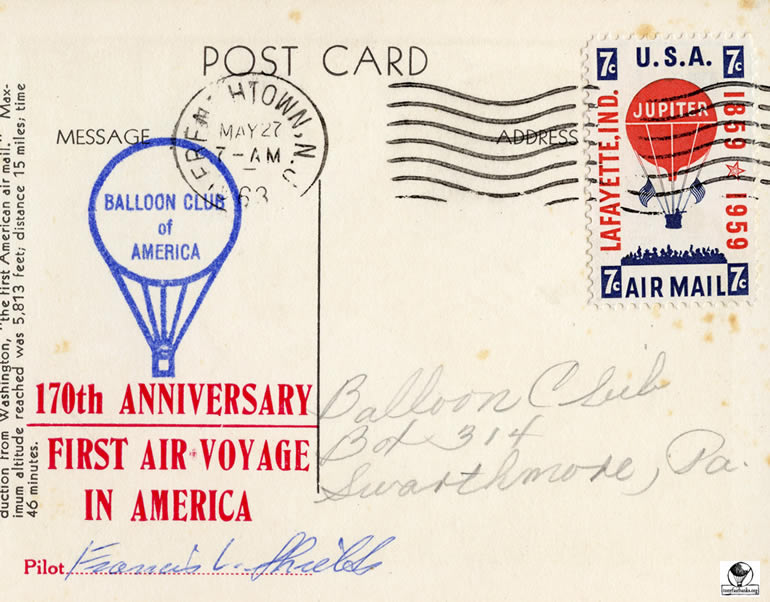 POST CARD
MESSAGE
ADDRESS
HTOWN, N.J
MAY 27
7-AM
63
7c U.S.A. 7c
LAFAYETTE, IND.
JUPITER
1859 ☆ 1959
7c AIR MAIL 7c
BALLOON CLUB
of
AMERICA
duction from Washington, "the first American air mail." Max-
imum altitude reached was 5,813 feet; distance 15 miles; time
46 minutes.
170th ANNIVERSARY
FIRST AIR VOYAGE
IN AMERICA
Balloon Club
Box 314
Swarthmore, Pa.
Pilot Francis L. Shields